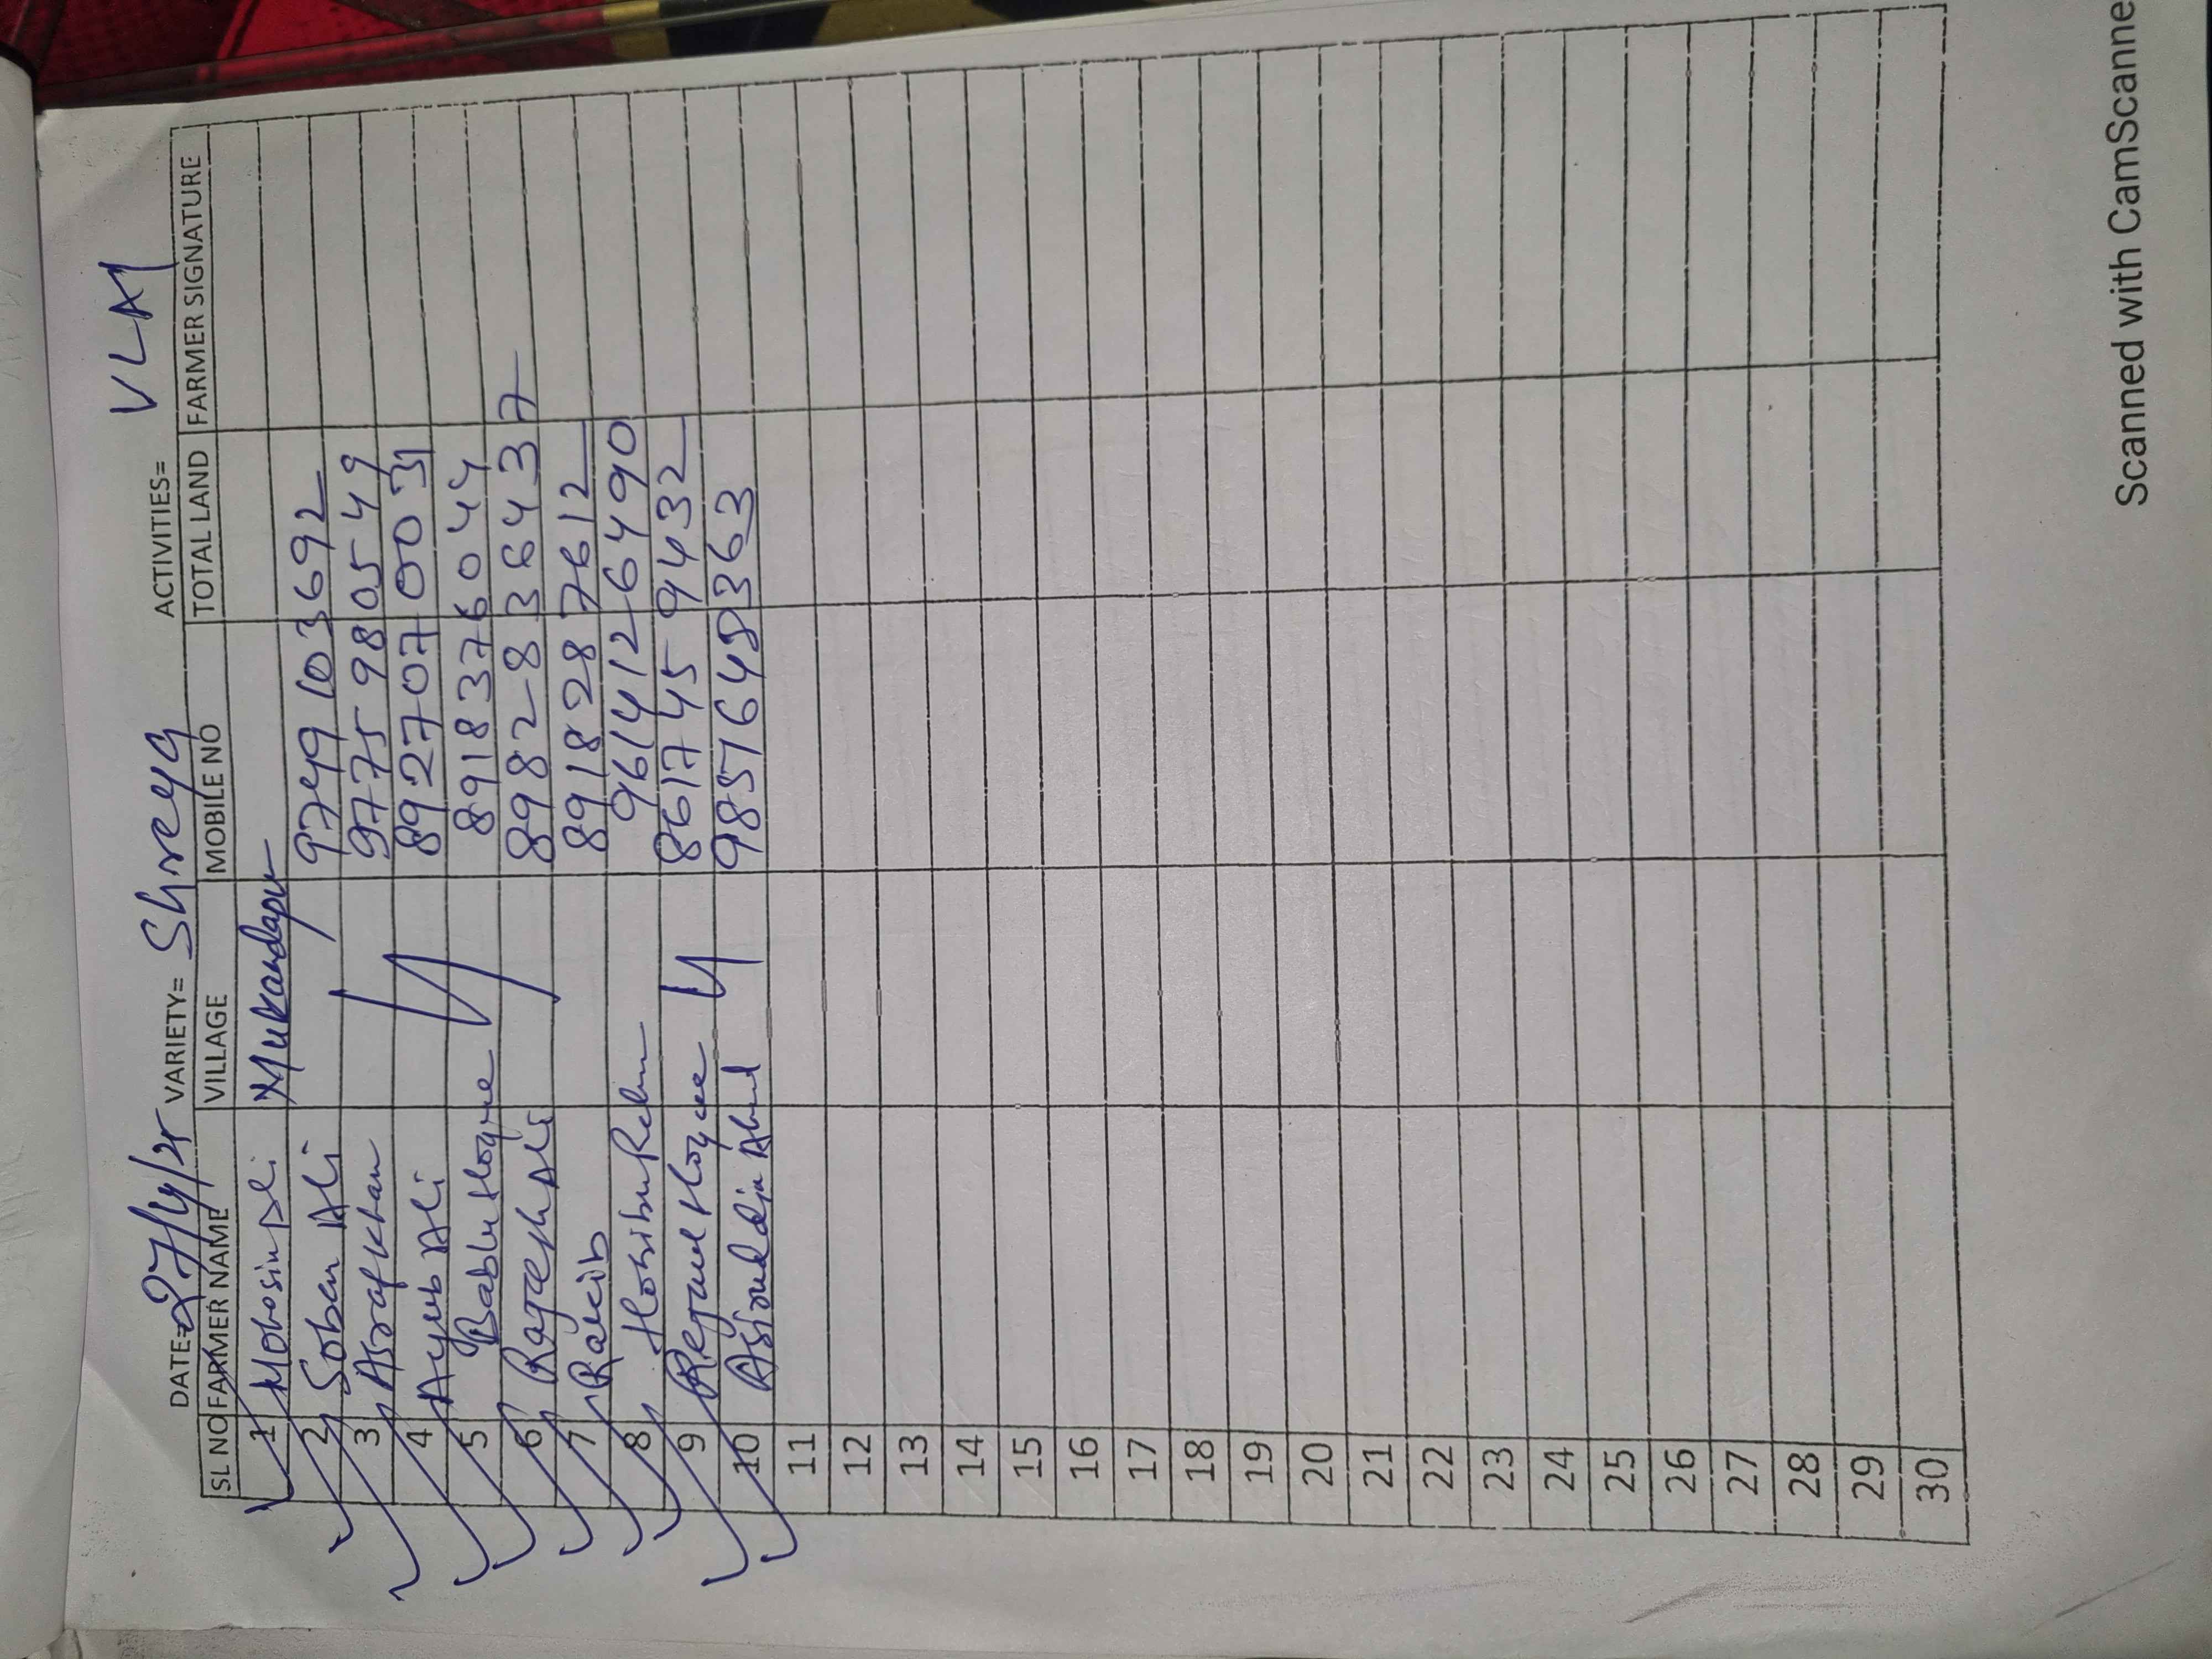 DATE= 27/4/25 VARIETY= Shreya ACTIVITIES= VLAY
SL NO FARMER NAME VILLAGE MOBILE NO TOTAL LAND FARMER SIGNATURE
1 Mohosin Ali Mukandapur
2 Soben Ali 9749103692
3 Asraf Khan 9775980549
4 Ayub Ali 8927070003
5 Bablu Hoque 8918376044
6 Rajesh Ali 8982836437
7 Rakib 8918287612
8 Hosibur 9614126490
9 Rejaul Hoque 8617459432
10 9857648363
11
12
13
14
15
16
17
18
19
20
21
22
23
24
25
26
27
28
29
30
Scanned with CamScanne